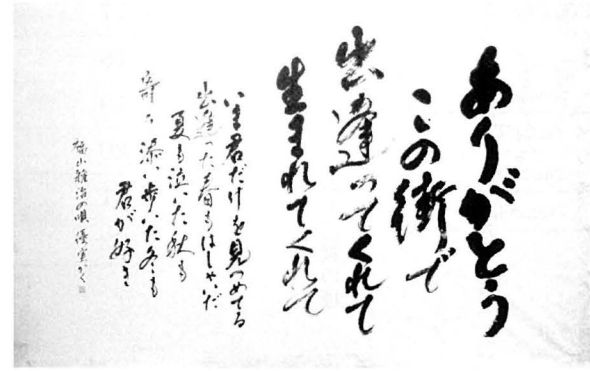 ありがとう
この街で
出逢ってくれて
生まれてくれて
いま君だけを見つめてる
出逢った春もはしゃいだ
夏も泣いた秋も
寄り添い歩いた冬も
君が好き
福山雅治の唄 優実かく